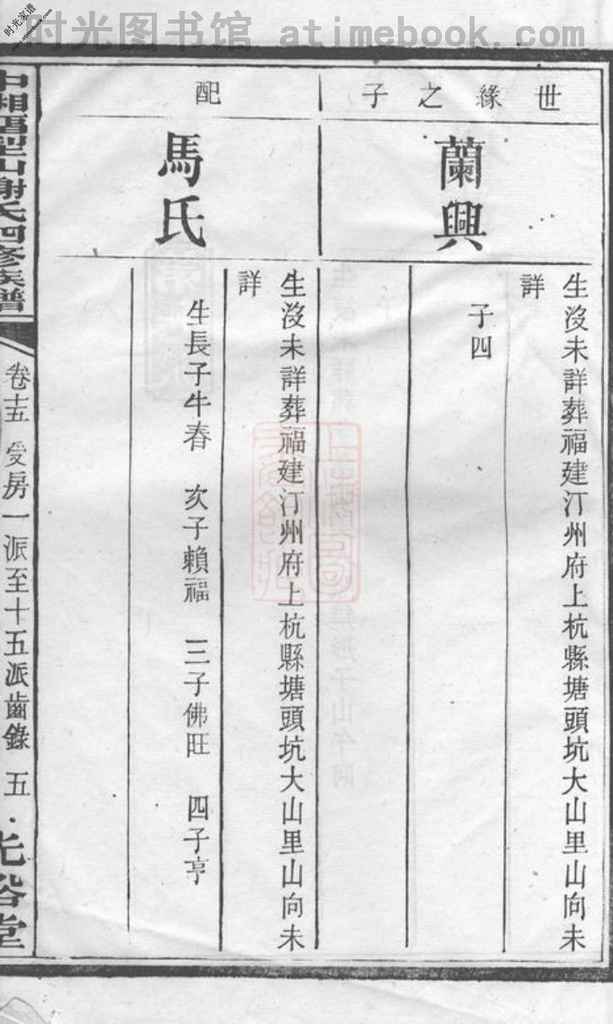 时光家谱
时光图书馆 atimebook.com
世緣之子
蘭興
生沒未詳葬福建汀州府上杭縣塘頭坑大山里山向未
詳
子四
配
馬氏
生沒未詳葬福建汀州府上杭縣塘頭坑大山里山向未
詳
生長子牛春 次子賴福 三子佛旺 四子亨
中湘 山謝氏 修族譜
卷十五 受房一派至十五派齒錄 五
光裕堂